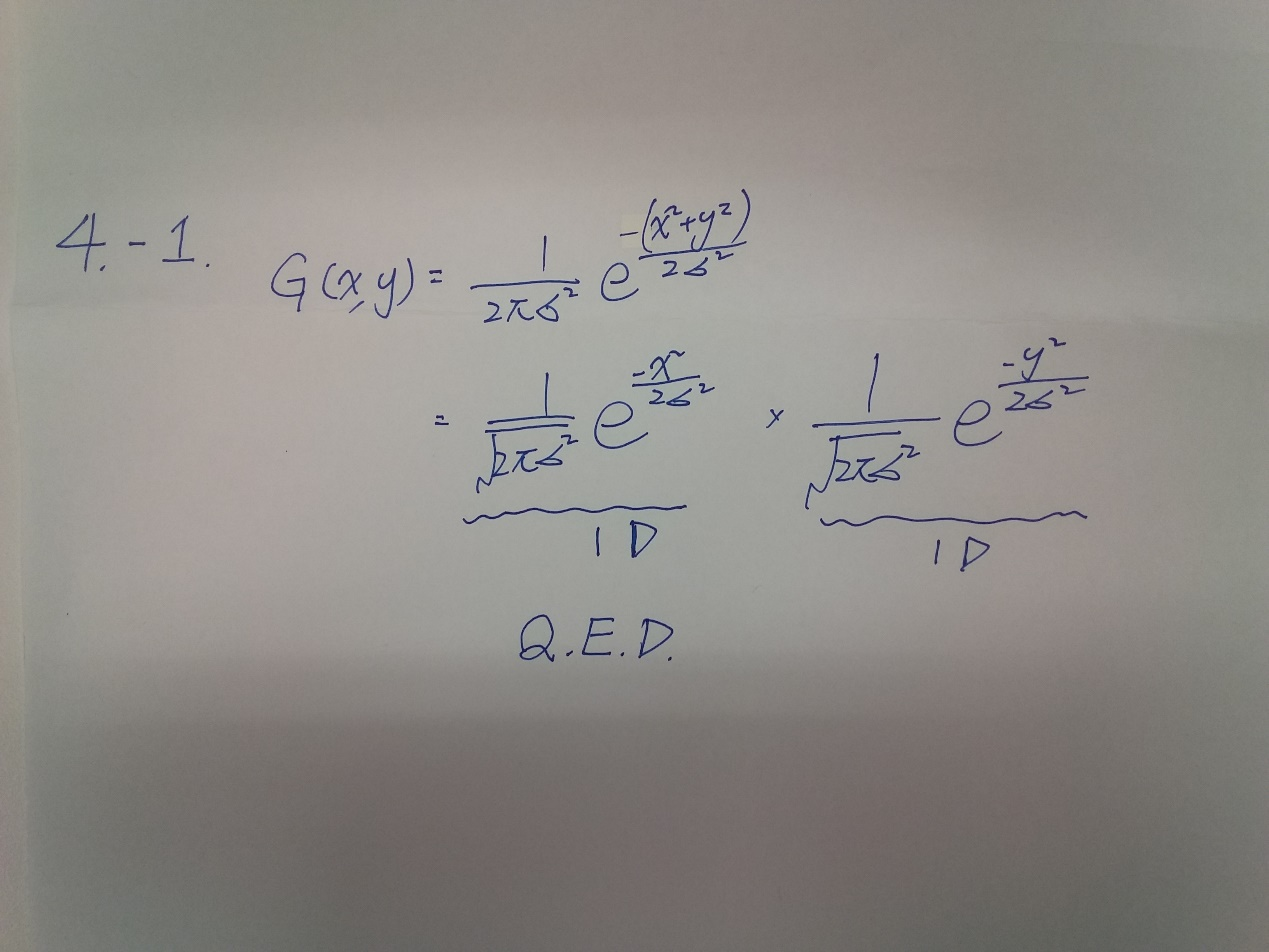 4.-1. G(x,y) = \frac{1}{2πσ^2} e^{\frac{-(x^2+y^2)}{2σ^2}}
= \frac{1}{\sqrt{2πσ^2}} e^{\frac{-x^2}{2σ^2}} × \frac{1}{\sqrt{2πσ^2}} e^{\frac{-y^2}{2σ^2}}
1D 1D
Q.E.D.